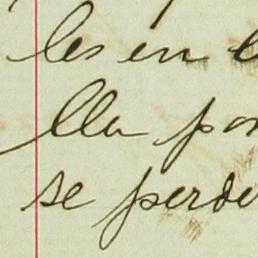 les en
lla por
se perde